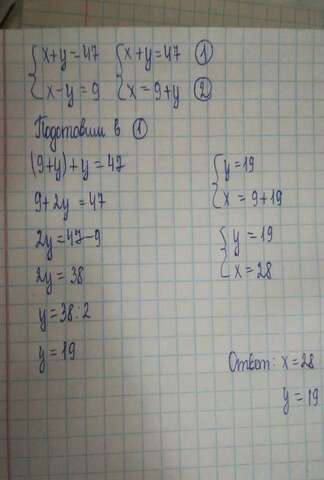 {x+y=47 {x+y=47 ①
{x-y=9 {x=9+y ②
Подставим в ①
(9+y)+y=47
9+2y=47
2y=47-9
2y=38
y=38:2
y=19
{y=19
{x=9+19
{y=19
{x=28
Ответ: x=28
y=19